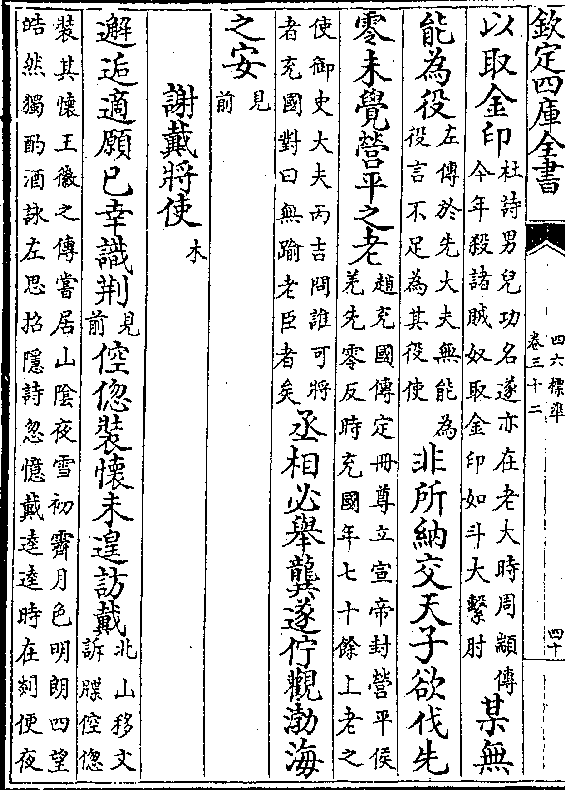 欽定四庫全書
四六標準
卷三十二
四十
以取金印杜詩男兒功名遂亦在老大時周顗傳今年殺諸賊奴取金印如斗大繫肘某無
能為役左傳於先大夫無能為役言不足為其役使非所納交天子欲伐先
零未覺營平之老趙充國傳定冊尊立宣帝封營平侯羌先零反時充國年七十餘上老之
使御史大夫丙吉問誰可將者充國對曰無踰老臣者矣丞相必舉龔遂佇觀渤海
之安見前
謝戴將使木
邂逅適願已幸識荆見前倥偬裝懷未遑訪戴北山移文訴牒倥偬
裝其懷王徽之傳嘗居山陰夜雪初霽月色明朗四望皓然獨酌酒詠左思招隱詩忽憶戴逵逵時在剡便夜